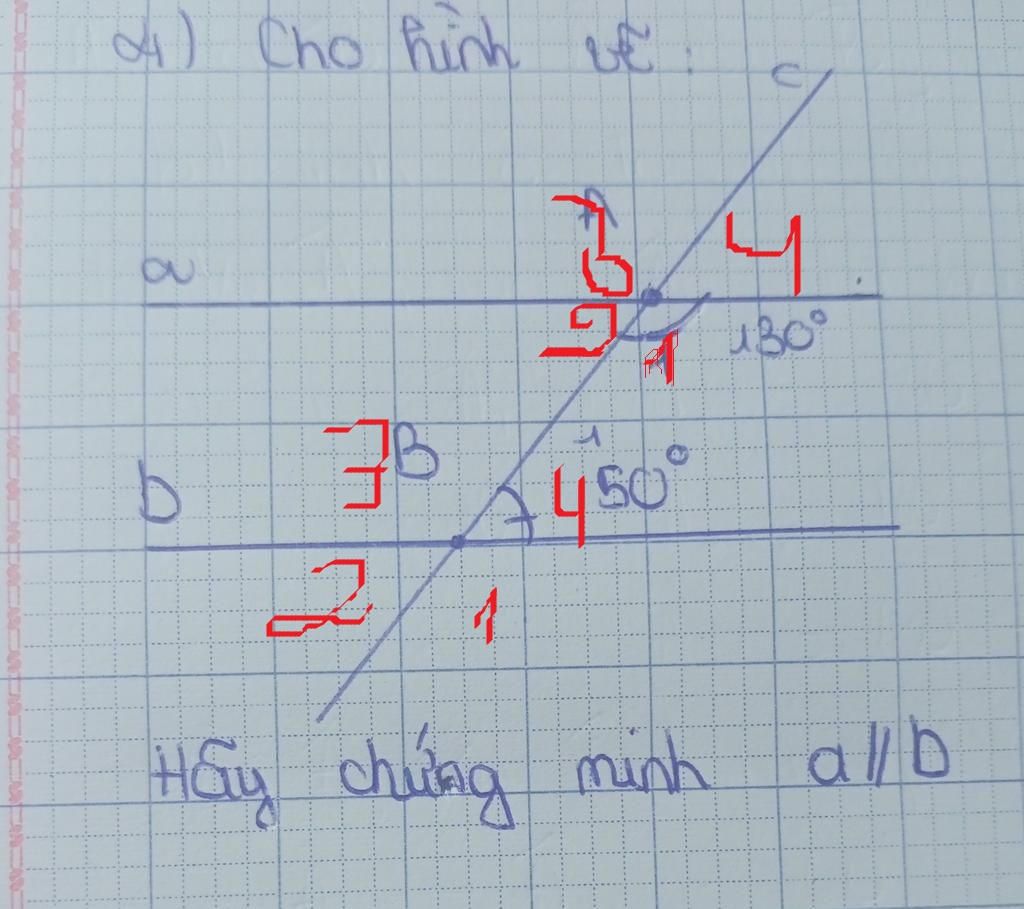 4) Cho hình vẽ:
c
A 3 4
a
2 1 130°
3 B 1
4 50°
b
2 1
Hãy chứng minh a // b